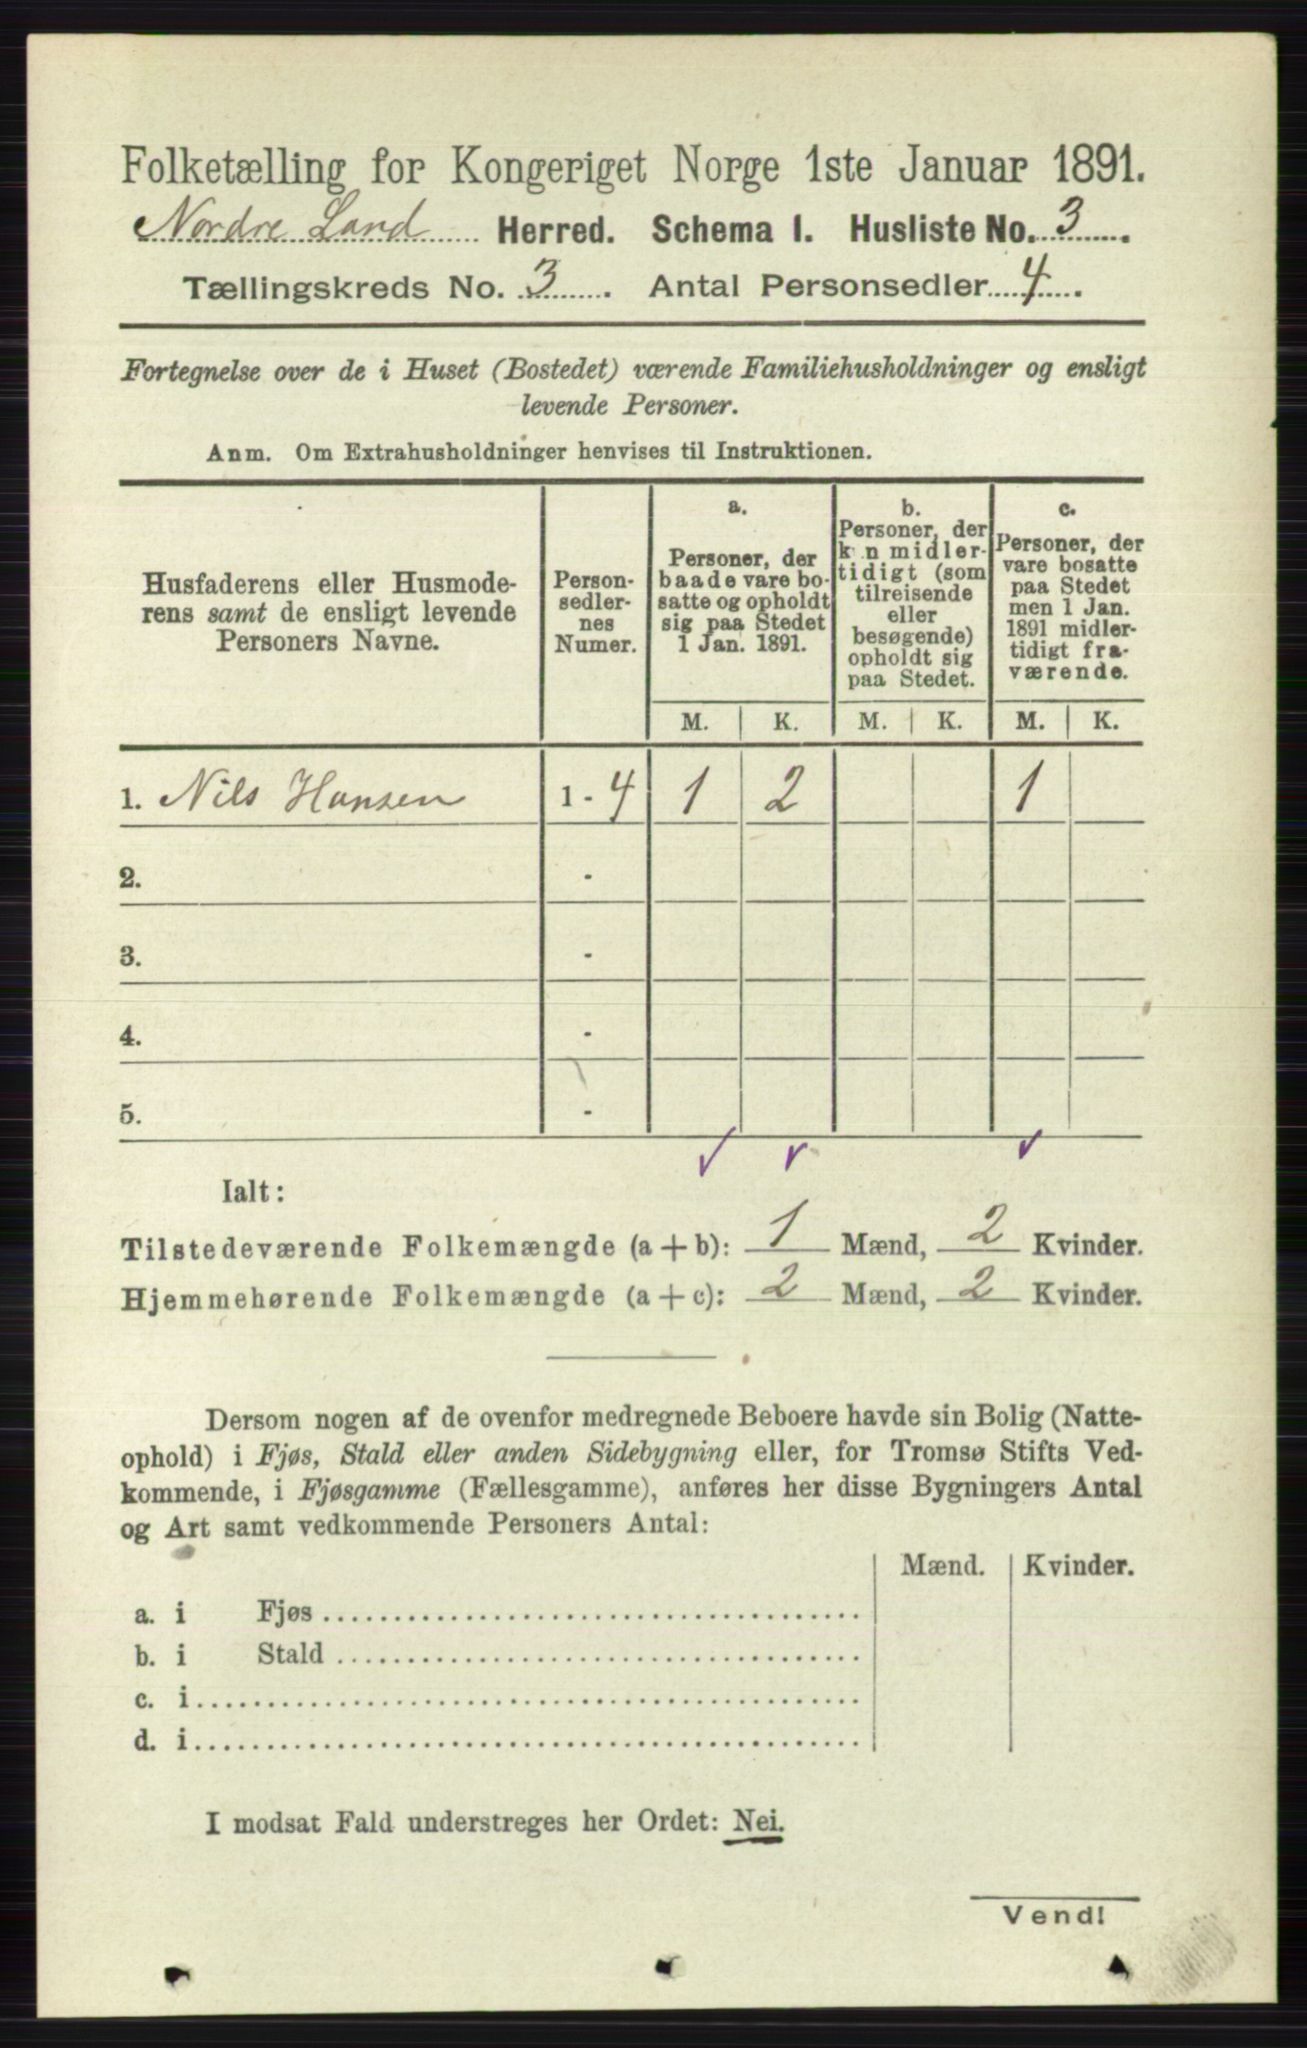 Folketælling for Kongeriget Norge 1ste Januar 1891.
Nordre Land Herred. Schema 1. Husliste No. 3.
Tællingskreds No. 3. Antal Personsedler 4.
Fortegnelse over de i Huset (Bostedet) værende Familiehusholdninger og ensligt
levende Personer.
Anm. Om Extrahusholdninger henvises til Instruktionen.
Husfaderens eller Husmode-
rens samt de ensligt levende
Personers Navne.
Person-
sedler-
nes
Numer.
a.
Personer, der
baade vare bo-
satte og opholdt
sig paa Stedet
1 Jan. 1891.
b.
Personer, der
kn midler-
tidigt (som
tilreisende
eller
besøgende)
opholdt sig
paa Stedet.
c.
Personer, der
vare bosatte
paa Stedet
men 1 Jan.
1891 midler-
tidigt fra-
værende.
M. K. M. K. M. K.
1. Nils Hansen 1-4 1 2 1
2. -
3. -
4. -
5. -
Ialt:
Tilstedeværende Folkemængde (a + b): 1 Mænd, 2 Kvinder.
Hjemmehørende Folkemængde (a + c): 2 Mænd, 2 Kvinder.
Dersom nogen af de ovenfor medregnede Beboere havde sin Bolig (Natte-
ophold) i Fjøs, Stald eller anden Sidebygning eller, for Tromsø Stifts Ved-
kommende, i Fjøsgamme (Fællesgamme), anføres her disse Bygningers Antal
og Art samt vedkommende Personers Antal:
Mænd. Kvinder.
a. i Fjøs
b. i Stald
c. i
d. i
I modsat Fald understreges her Ordet: Nei.
Vend!